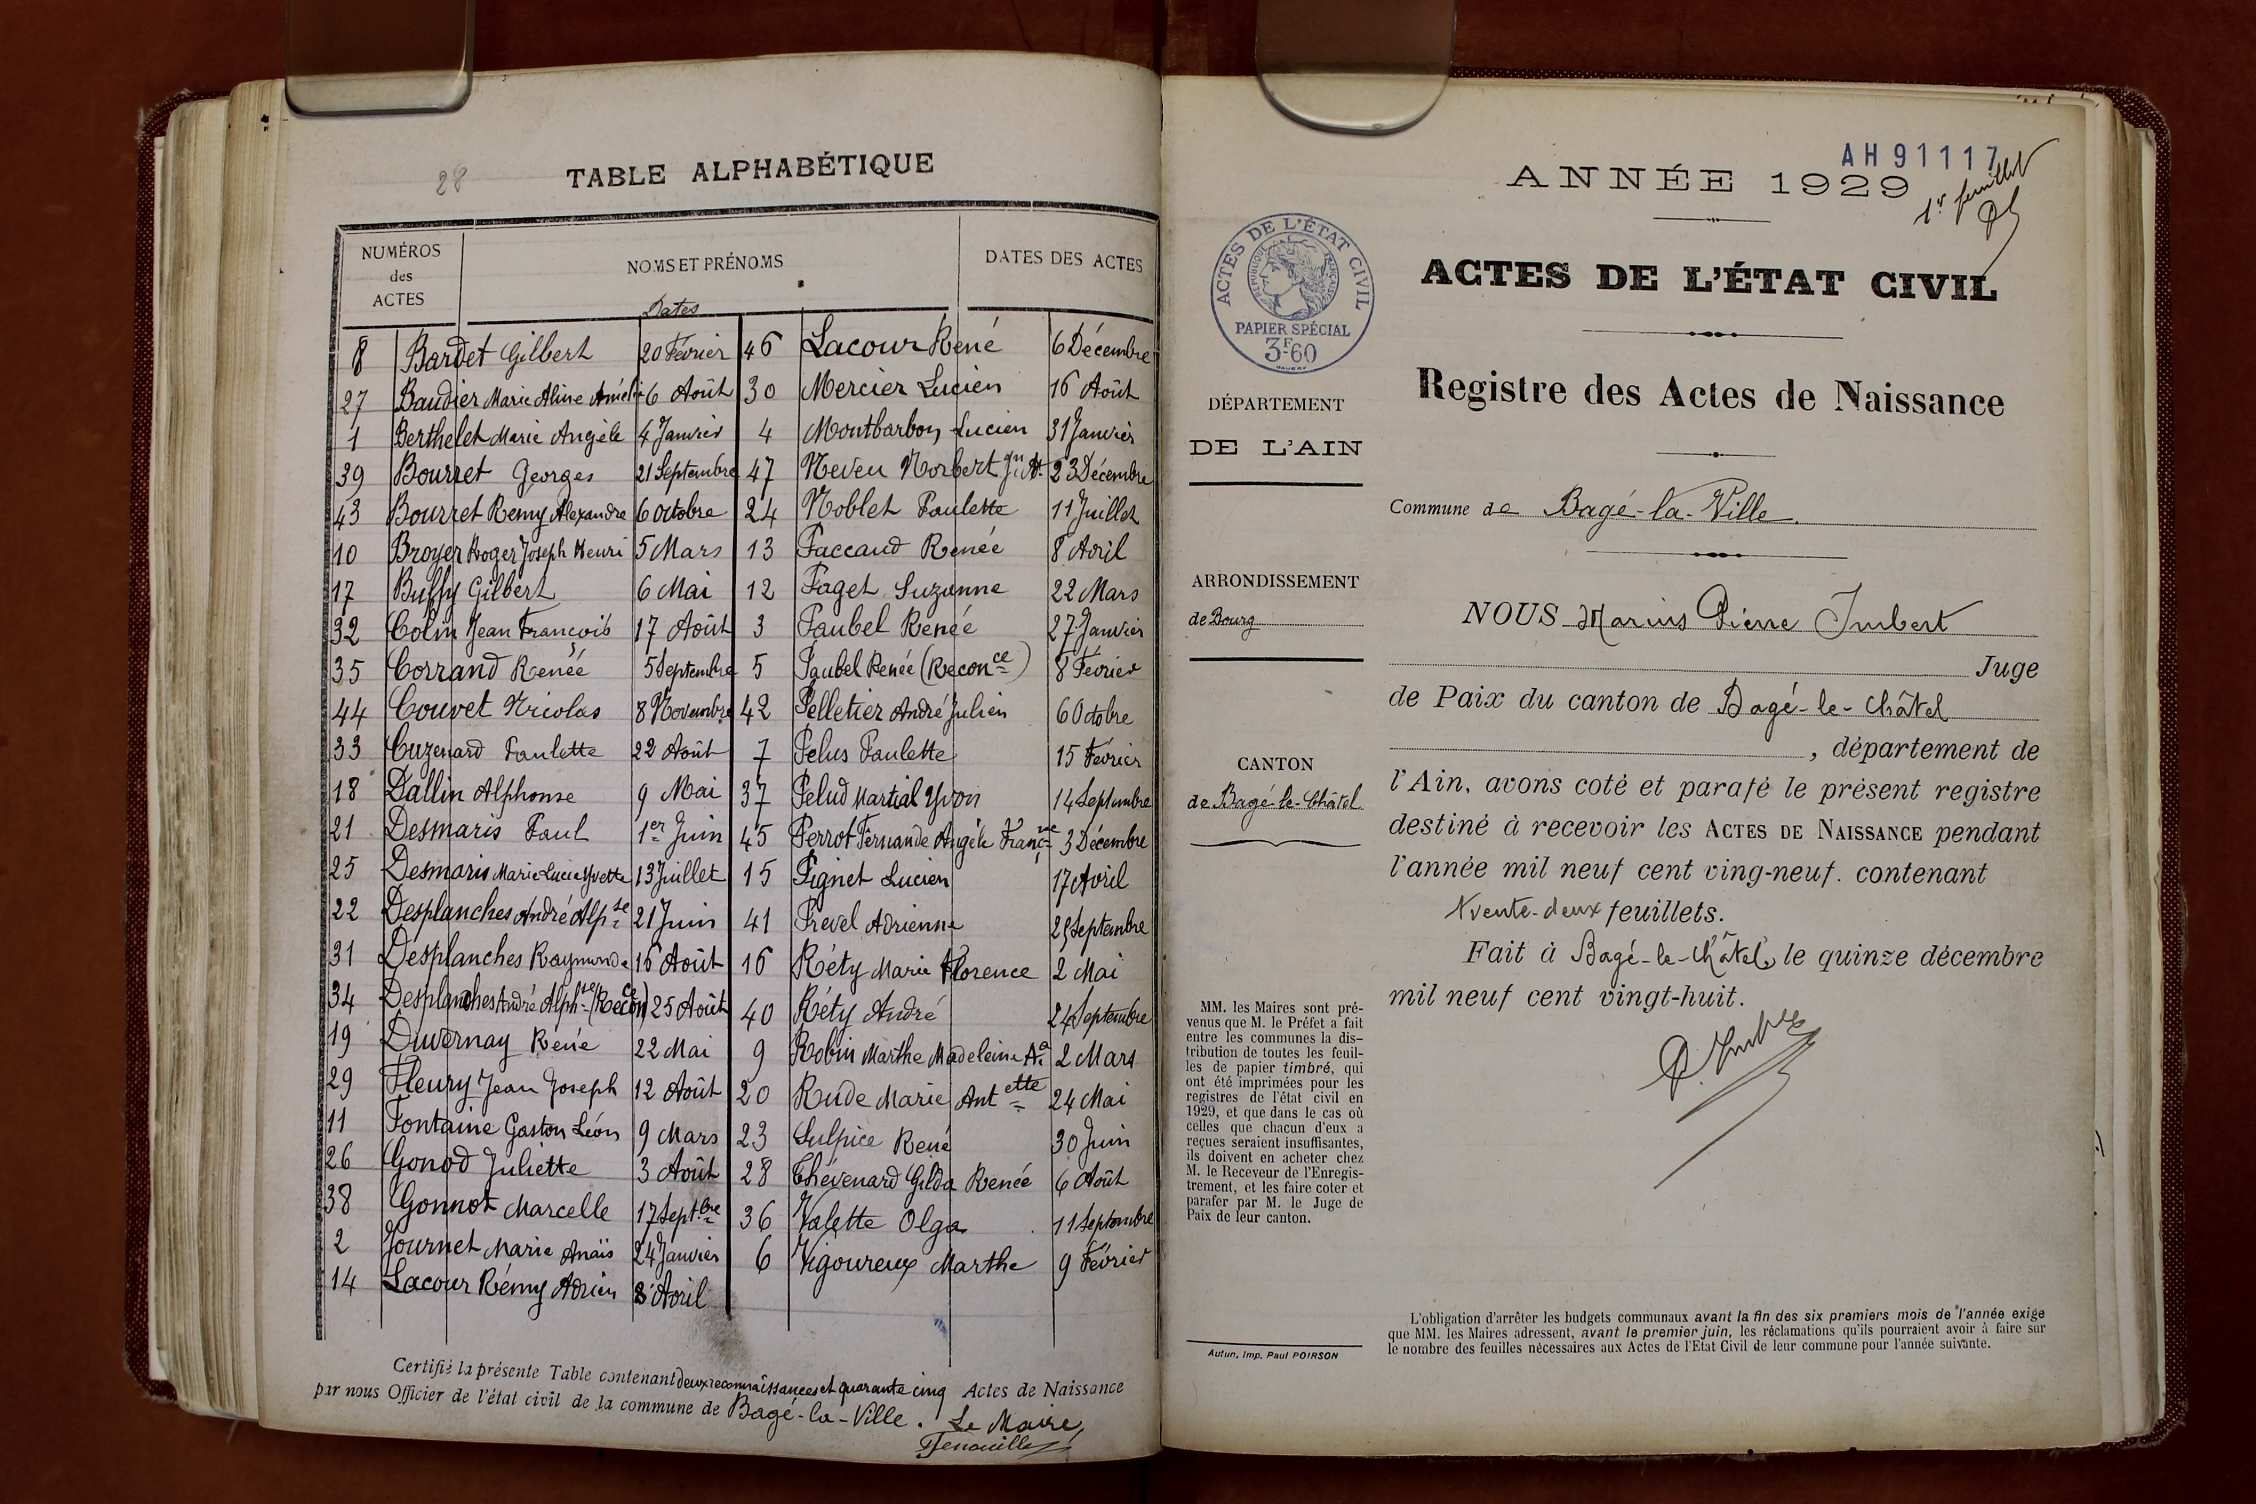 28
TABLE ALPHABÉTIQUE
NUMÉROS des ACTES
NOMS ET PRÉNOMS
DATES DES ACTES
Dates
8 Bardet Gilbert 20 Février
27 Baudier Marie Aline Amélie 6 Août
1 Berthelet Marie Angèle 4 Janvier
39 Bourret Georges 21 Septembre
43 Bourret Remy Alexandre 6 Octobre
10 Broyer Roger Joseph Henri 5 Mars
17 Buffy Gilbert 6 Mai
32 Colin Jean François 17 Août
35 Corrand Renée 5 Septembre
44 Couvet Nicolas 8 Novembre
33 Cuzenard Paulette 22 Août
18 Dallin Alphonse 9 Mai
21 Desmaris Paul 1er Juin
25 Desmaris Marie Lucie Yvette 13 Juillet
22 Desplanches André Alpse 21 Juin
31 Desplanches Raymonde 16 Août
34 Desplanches André Alphse (Reconce) 25 Août
19 Duvernay René 22 Mai
29 Fleury Jean Joseph 12 Août
11 Fontaine Gaston Léon 9 Mars
26 Gonod Juliette 3 Août
38 Gonnot Marcelle 17 Septbre
2 Journet Marie Anaïs 24 Janvier
14 Lacour Rémy Adrien 8 Avril
46 Lacour René 6 Décembre
30 Mercier Lucien 16 Août
4 Montbarbon Lucien 31 Janvier
47 Neveu Norbert 23 Décembre
24 Noblet Paulette 11 Juillet
13 Paccaud Renée 8 Avril
12 Paget Suzanne 22 Mars
3 Paubel Renée 27 Janvier
5 Paubel Renée (Reconce) 8 Février
42 Pelletier André Julien 6 Octobre
7 Pelus Paulette 15 Février
37 Pelud Martial Yvon 14 Septembre
45 Perrot Fernande Angèle Françse 3 Décembre
15 Pignet Lucien 17 Avril
41 Prevel Adrienne 25 Septembre
16 Réty Marie Florence 2 Mai
40 Réty André 24 Septembre
9 Robin Marthe Madeleine Aa 2 Mars
20 Rude Marie Antette 24 Mai
23 Sulpice René 30 Juin
28 Thévenard Gilda Renée 6 Août
36 Valette Olga 11 Septembre
6 Vigoureux Marthe 9 Février
Certifié la présente Table contenant deux reconnaissances et quarante cinq Actes de Naissance
par nous Officier de l'état civil de la commune de Bagé-la-Ville. Le Maire,
AH 91117
ANNÉE 1929
1r feuillet
ACTES DE L'ÉTAT CIVIL
RÉPUBLIQUE FRANÇAISE
PAPIER SPÉCIAL
3F60
ACTES DE L'ÉTAT CIVIL
Registre des Actes de Naissance
DÉPARTEMENT
DE L'AIN
Commune de Bagé-la-Ville.
ARRONDISSEMENT
de Bourg
CANTON
de Bagé-le-Châtel
NOUS Marius Pierre Imbert
Juge
de Paix du canton de Bagé-le-Châtel
, département de
l'Ain, avons coté et parafé le présent registre
destiné à recevoir les ACTES DE NAISSANCE pendant
l'année mil neuf cent ving-neuf. contenant
trente-deux feuillets.
Fait à Bagé-le-Châtel, le quinze décembre
mil neuf cent vingt-huit.
P. Imbert
MM. les Maires sont pré-
venus que M. le Préfet a fait
entre les communes la dis-
tribution de toutes les feuil-
les de papier timbré, qui
ont été imprimées pour les
registres de l'état civil en
1929, et que dans le cas où
celles que chacun d'eux a
reçues seraient insuffisantes,
ils doivent en acheter chez
M. le Receveur de l'Enregis-
trement, et les faire coter et
parafer par M. le Juge de
Paix de leur canton.
Autun, Imp. Paul POIRSON
L'obligation d'arrêter les budgets communaux avant la fin des six premiers mois de l'année exige
que MM. les Maires adressent, avant le premier juin, les réclamations qu'ils pourraient avoir à faire sur
le nombre des feuilles nécessaires aux Actes de l'Etat Civil de leur commune pour l'année suivante.